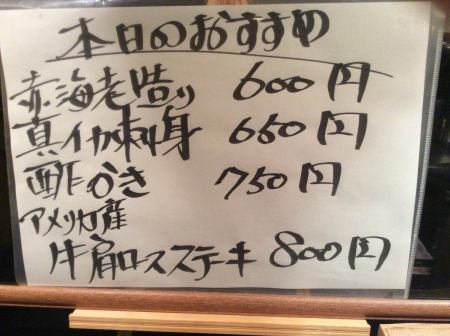 本日のおすすめ
赤海老造り 600円
真イカ刺身 650円
酢かき 750円
アメリカ産
牛肩ロースステーキ 800円